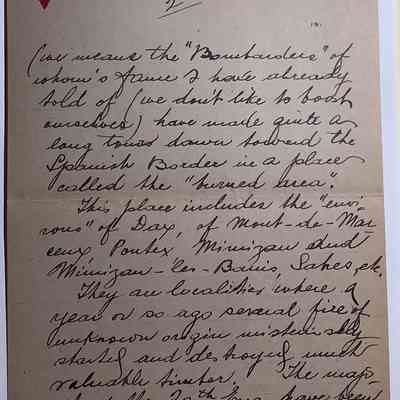 2
(we means the "Bombarders" of
whom's fame I have already
told of (we don't like to boast
ourselves) have made quite a
long tours down toward the
Spanish Border in a place
called the "burned area".
This place includes the "envi-
rons" of Dax, of Mont-de-Mar-
ceux Pontex, Mimizan and
Mimizan-les-Bains, Sabes, etc.
They are localities where a
year or so ago several fire of
unknown origin misteriously
started and destroyed much
valuable timber. The maj-
20th have been